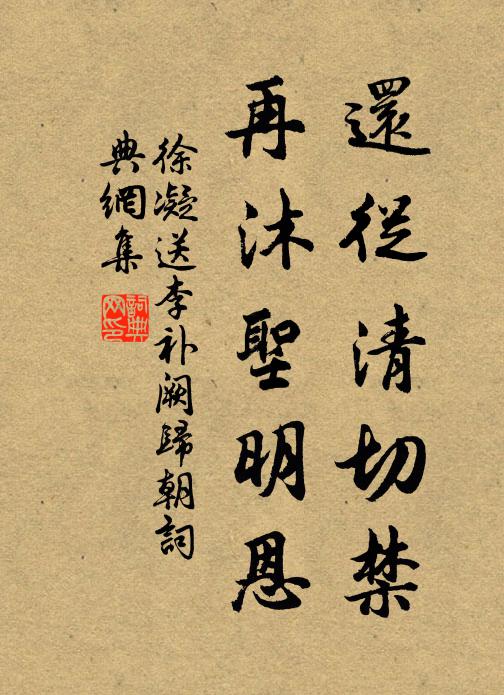 還從清切禁
再沐聖明恩
徐凝送李补阙歸朝詞
典網集
詞典网印